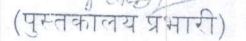 (पुस्तकालय प्रभारी)